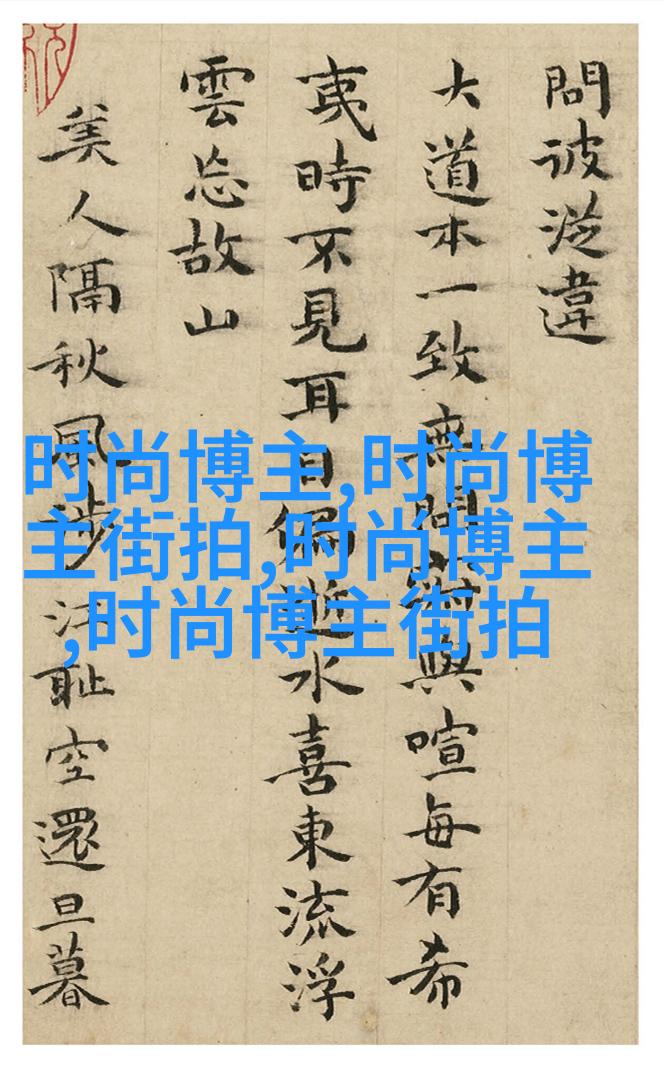 問彼從違
大道本一致無間與喧每有希
夷時不見耳目偏逝水喜東流浮
雲忘故山
美人隔秋風涉江耻空還旦暮
时尚博主,时尚博
主街拍,时尚博主
,时尚博主街拍